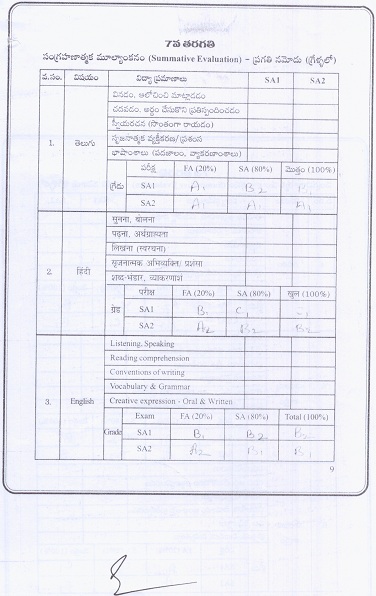 7వ తరగతి
సంగ్రహణాత్మక మూల్యాంకనం (Summative Evaluation) – ప్రగతి నమోదు (గ్రేళ్ళలో)
వ.సం. విషయం విద్యా ప్రమాణాలు SA1 SA2
వినడం, ఆలోచించి మాట్లాడడం
చదవడం, అర్థం చేసుకొని ప్రతిస్పందించడం
స్వీయరచన (సొంతంగా రాయడం)
సృజనాత్మక వ్యక్తీకరణ/ప్రశంస
భాషాంశాలు (పదజాలం, వ్యాకరణాంశాలు)
1. తెలుగు
గ్రేడు పరీక్ష FA (20%) SA (80%) మొత్తం (100%)
SA1 A1 B2
SA2 A1 A1 A1
सुनना, बोलना
पढ़ना, अर्थग्राह्यता
लिखना (स्वरचना)
सृजनात्मक अभिव्यक्ति/ प्रशंसा
शब्द-भंडार, व्याकरणांश
2. हिंदी
ग्रेड परीक्ष FA (20%) SA (80%) कुल (100%)
SA1 B1 C1
SA2 A2 B2 B2
Listening, Speaking
Reading comprehension
Conventions of writing
Vocabulary & Grammar
Creative expression - Oral & Written
3. English
Grade Exam FA (20%) SA (80%) Total (100%)
SA1 B1 B2 B2
SA2 A2 B1 B1
9